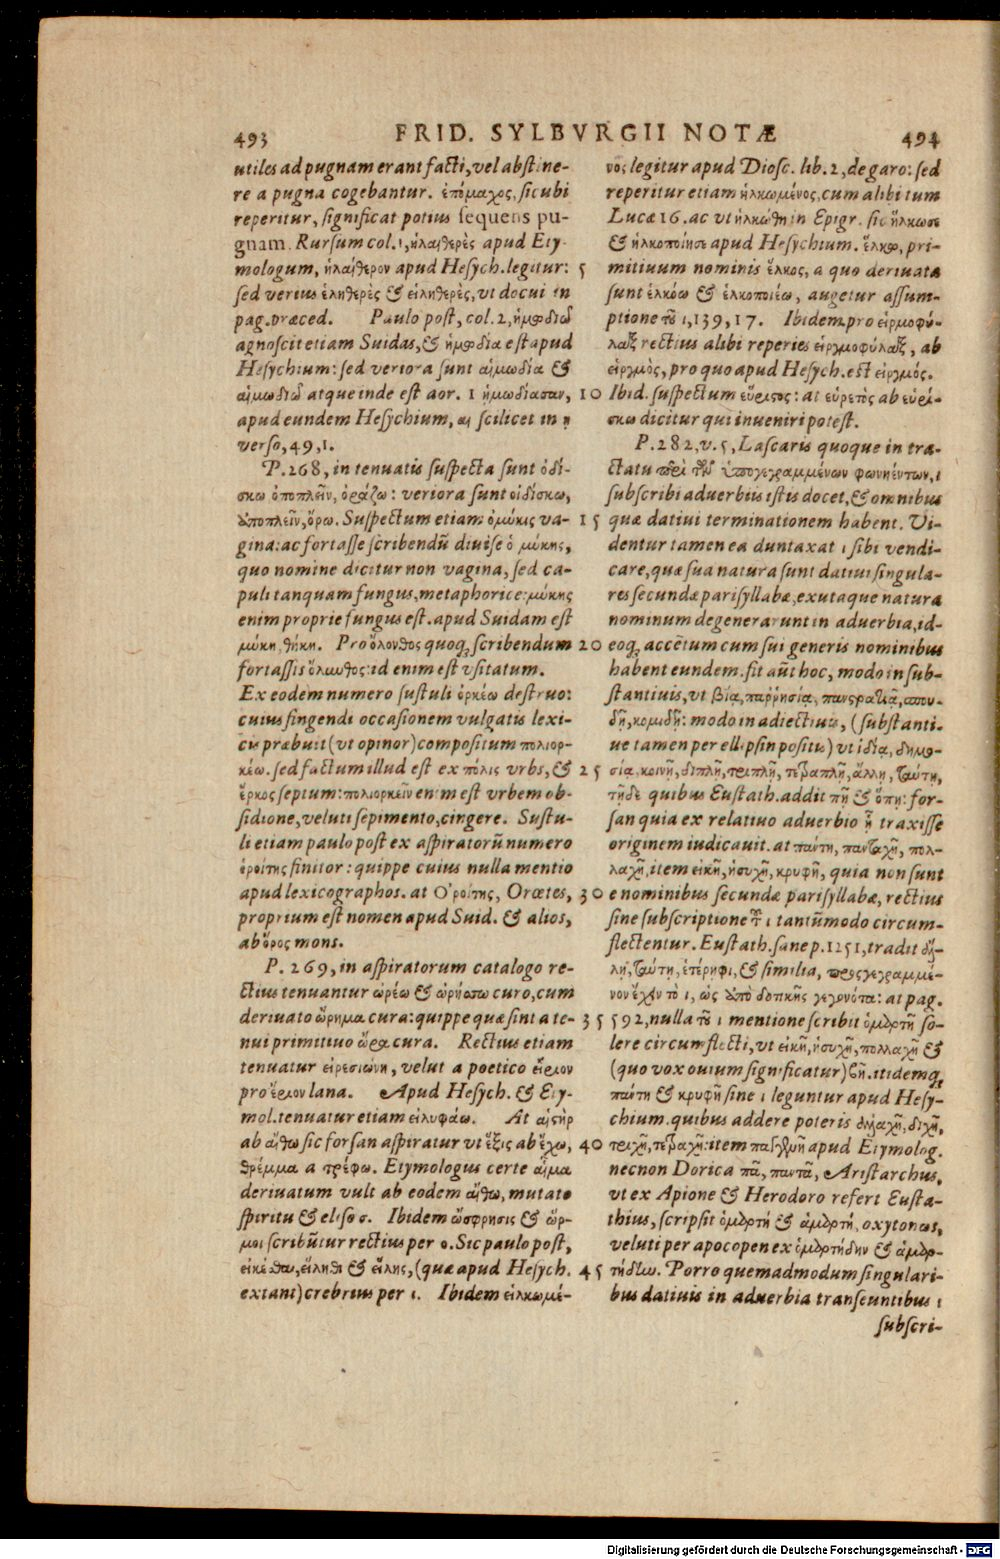 493 FRID. SYLBVRGII NOTÆ 494
utiles ad pugnam erant facti, vel abstine-
re a pugna cogebantur. ἐπίμαχος, sicubi
reperitur, significat potius sequens pu-
gnam. Rursum col. 1, ἡλαιθερὲς apud Ety-
mologum, ἡλαίθερον apud Hesych. legitur: 5
sed verius ἑληθερὲς & εἱληθερὲς, vt docui in
pag. præced. Paulo post, col. 2, ἡμωδιῶ
agnoscit etiam Suidas, & ἡμωδία est apud
Hesychium: sed veriora sunt αἱμωδία &
αἱμωδιῶ atque inde est aor. 1 ἡμωδίασαν, 10
apud eundem Hesychium, αι scilicet in η
verso, 49, 1.
P. 268, in tenuatis suspecta sunt ὀδί-
σκω ὀποπλεῖν, ὀράζω: veriora sunt οἰδίσκω,
ὑποπλεῖν, ὁρω. Suspectum etiam ὀμύκις va- 15
gina: ac fortasse scribendũ diuise ὁ μύκης,
quo nomine dicitur non vagina, sed ca-
puli tanquam fungus, metaphorice: μύκης
enim proprie fungus est. apud Suidam est
μύκη, θήκη. Pro ὄλονθος quoq; scribendum 20
fortassis ὄλυνθος: id enim est vsitatum.
Ex eodem numero sustuli ὀρκέω destruo:
cuius fingendi occasionem vulgatis lexi-
cis præbuit (vt opinor) compositum πολιορ-
κέω. sed factum illud est ex πόλις vrbs, & 25
ἕρκος septum: πολιορκεῖν enim est vrbem ob-
sidione, veluti sepimento, cingere. Sustu-
li etiam paulo post ex aspiratorũ numero
ἑροίτης finitor: quippe cuius nulla mentio
apud lexicographos. at Ὀροίτης, Orœtes, 30
proprium est nomen apud Suid. & alios,
ab ὄρος mons.
P. 269, in aspiratorum catalogo re-
ctius tenuantur ὠρέω & ὠρήσσω curo, cum
deriuato ὤρημα cura: quippe quæ sint a te- 35
nui primitiuo ὤρα cura. Rectius etiam
tenuatur εἰρεσιώνη, velut a poetico εἴριον
pro ἔριον lana. Apud Hesych. & Ety-
mol. tenuatur etiam εἰλυφάω. At αἱστὴρ
ab αἴθω sic forsan aspiratur vt ἕξις ab ἔχω, 40
θρέμμα a τρέφω. Etymologus certe αἷμα
deriuatum vult ab eodem αἴθω, mutato
spiritu & eliso σ. Ibidem ὥσφρησις & ὥρ-
μοι scribũtur rectius per ο. Sic paulo post,
εἱκέθαι, εἵληθι & εἵλης, (quæ apud Hesych. 45
extant) crebrius per ι. Ibidem εἱλκωμέ-
νος legitur apud Diosc. lib. 2, de garo: sed
reperitur etiam ἡλκωμένος, cum alibi tum
Lucæ 16. ac vt ἡλκώθη in Epigr. sic ἥλκωσε
& ἡλκοποίησε apud Hesychium. ἕλκω, pri-
mitiuum nominis ἕλκος, a quo deriuata
sunt ἑλκόω & ἑλκοποιέω, augetur assum-
ptione τοῦ ι, 139, 17. Ibidem pro εἱρμοφύ-
λαξ rectius alibi reperies εἱργμοφύλαξ, ab
εἱργμὸς, pro quo apud Hesych. est εἰργμός.
Ibid. suspectum εὕρισος: at εὑρετὸς ab εὑρί-
σκω dicitur qui inueniri potest.
P. 282, v. 5, Lascaris quoque in tra-
ctatu περὶ τῶν ὑπογεγραμμένων φωνηέντων, ι
subscribi aduerbiis istis docet, & omnibus
quæ datiui terminationem habent. Vi-
dentur tamen ea duntaxat ι sibi vendi-
care, quæ sua natura sunt datiui singula-
res secundæ parisyllabæ, exutaque natura
nominum degenerarunt in aduerbia, id-
eoq; accẽtum cum sui generis nominibus
habent eundem. fit aũt hoc, modo in sub-
stantiuis, vt βίᾳ, παῤῥησίᾳ, πανστρατιᾷ, σπου-
δῇ, κομιδῇ: modo in adiectiuis, (substanti-
ue tamen per ellipsin positis) vt ἰδίᾳ, δημο-
σίᾳ, κοινῇ, διπλῇ, τριπλῇ, τετραπλῇ, ἄλλῃ, ταύτῃ,
τῇδε quibus Eustath. addit πῇ & ὅπῃ: for-
san quia ex relatiuo aduerbio ᾗ traxisse
originem iudicauit. at πάντη, πανταχῆ, πολ-
λαχῆ, item εἰκῆ, ἡσυχῆ, κρυφῆ, quia non sunt
e nominibus secundæ parisyllabæ, rectius
sine subscriptione τοῦ ι tantũmodo circum-
flectentur. Eustath. sane p. 1251, tradit ἄλ-
λῃ, ταύτῃ, ἑτέρηφι, & similia, προσγεγραμμέ-
νον ἔχειν τὸ ι, ὡς ἀπὸ δοτικῆς γεγονότα: at pag.
592, nulla τοῦ ι mentione scribit ὁμαρτῆ so-
lere circumflecti, vt εἰκῆ, ἡσυχῆ, πολλαχῆ &
(quo vox ouium significatur) βῆ. itidemq;
πάντη & κρυφῆ sine ι leguntur apud Hesy-
chium. quibus addere poteris διχαχῆ, διχῆ,
τριχῆ, τετραχῆ: item παγχυῆ apud Etymolog.
necnon Dorica πᾶ, παντᾶ, Aristarchus,
vt ex Apione & Herodoro refert Eusta-
thius, scripsit ὁμαρτή & ἁμαρτή, oxytonως,
veluti per apocopen ex ὁμαρτήδην & ἁμαρ-
τήδην. Porro quemadmodum singulari-
bus datiuis in aduerbia transeuntibus ι
subscri-
Digitalisierung gefördert durch die Deutsche Forschungsgemeinschaft - DFG